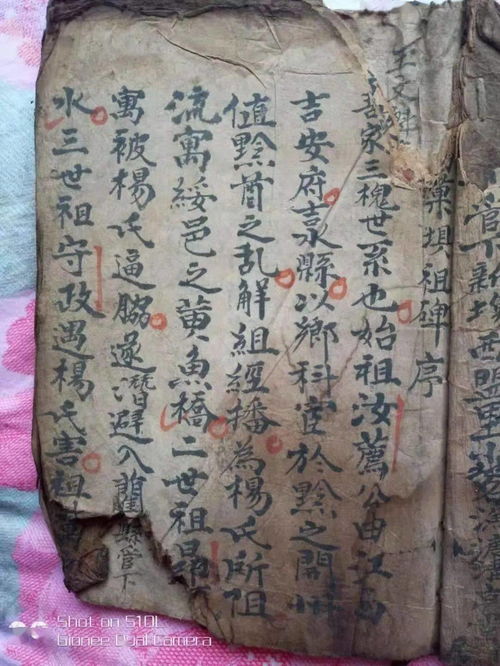 王文
業埧祖碑序
吾家三槐世系也始祖汝薦公由江西
吉安府永縣以鄉科宦於黔之開州
值黔酋之乱解組經播為楊氏所阻
流寓綏邑之黄魚橋二世祖昂
寓被楊氏逼脇遂潛避入藺縣管下
水三世祖守政遇楊氏害祖
Shot on S10L
Gionee Dual Camera